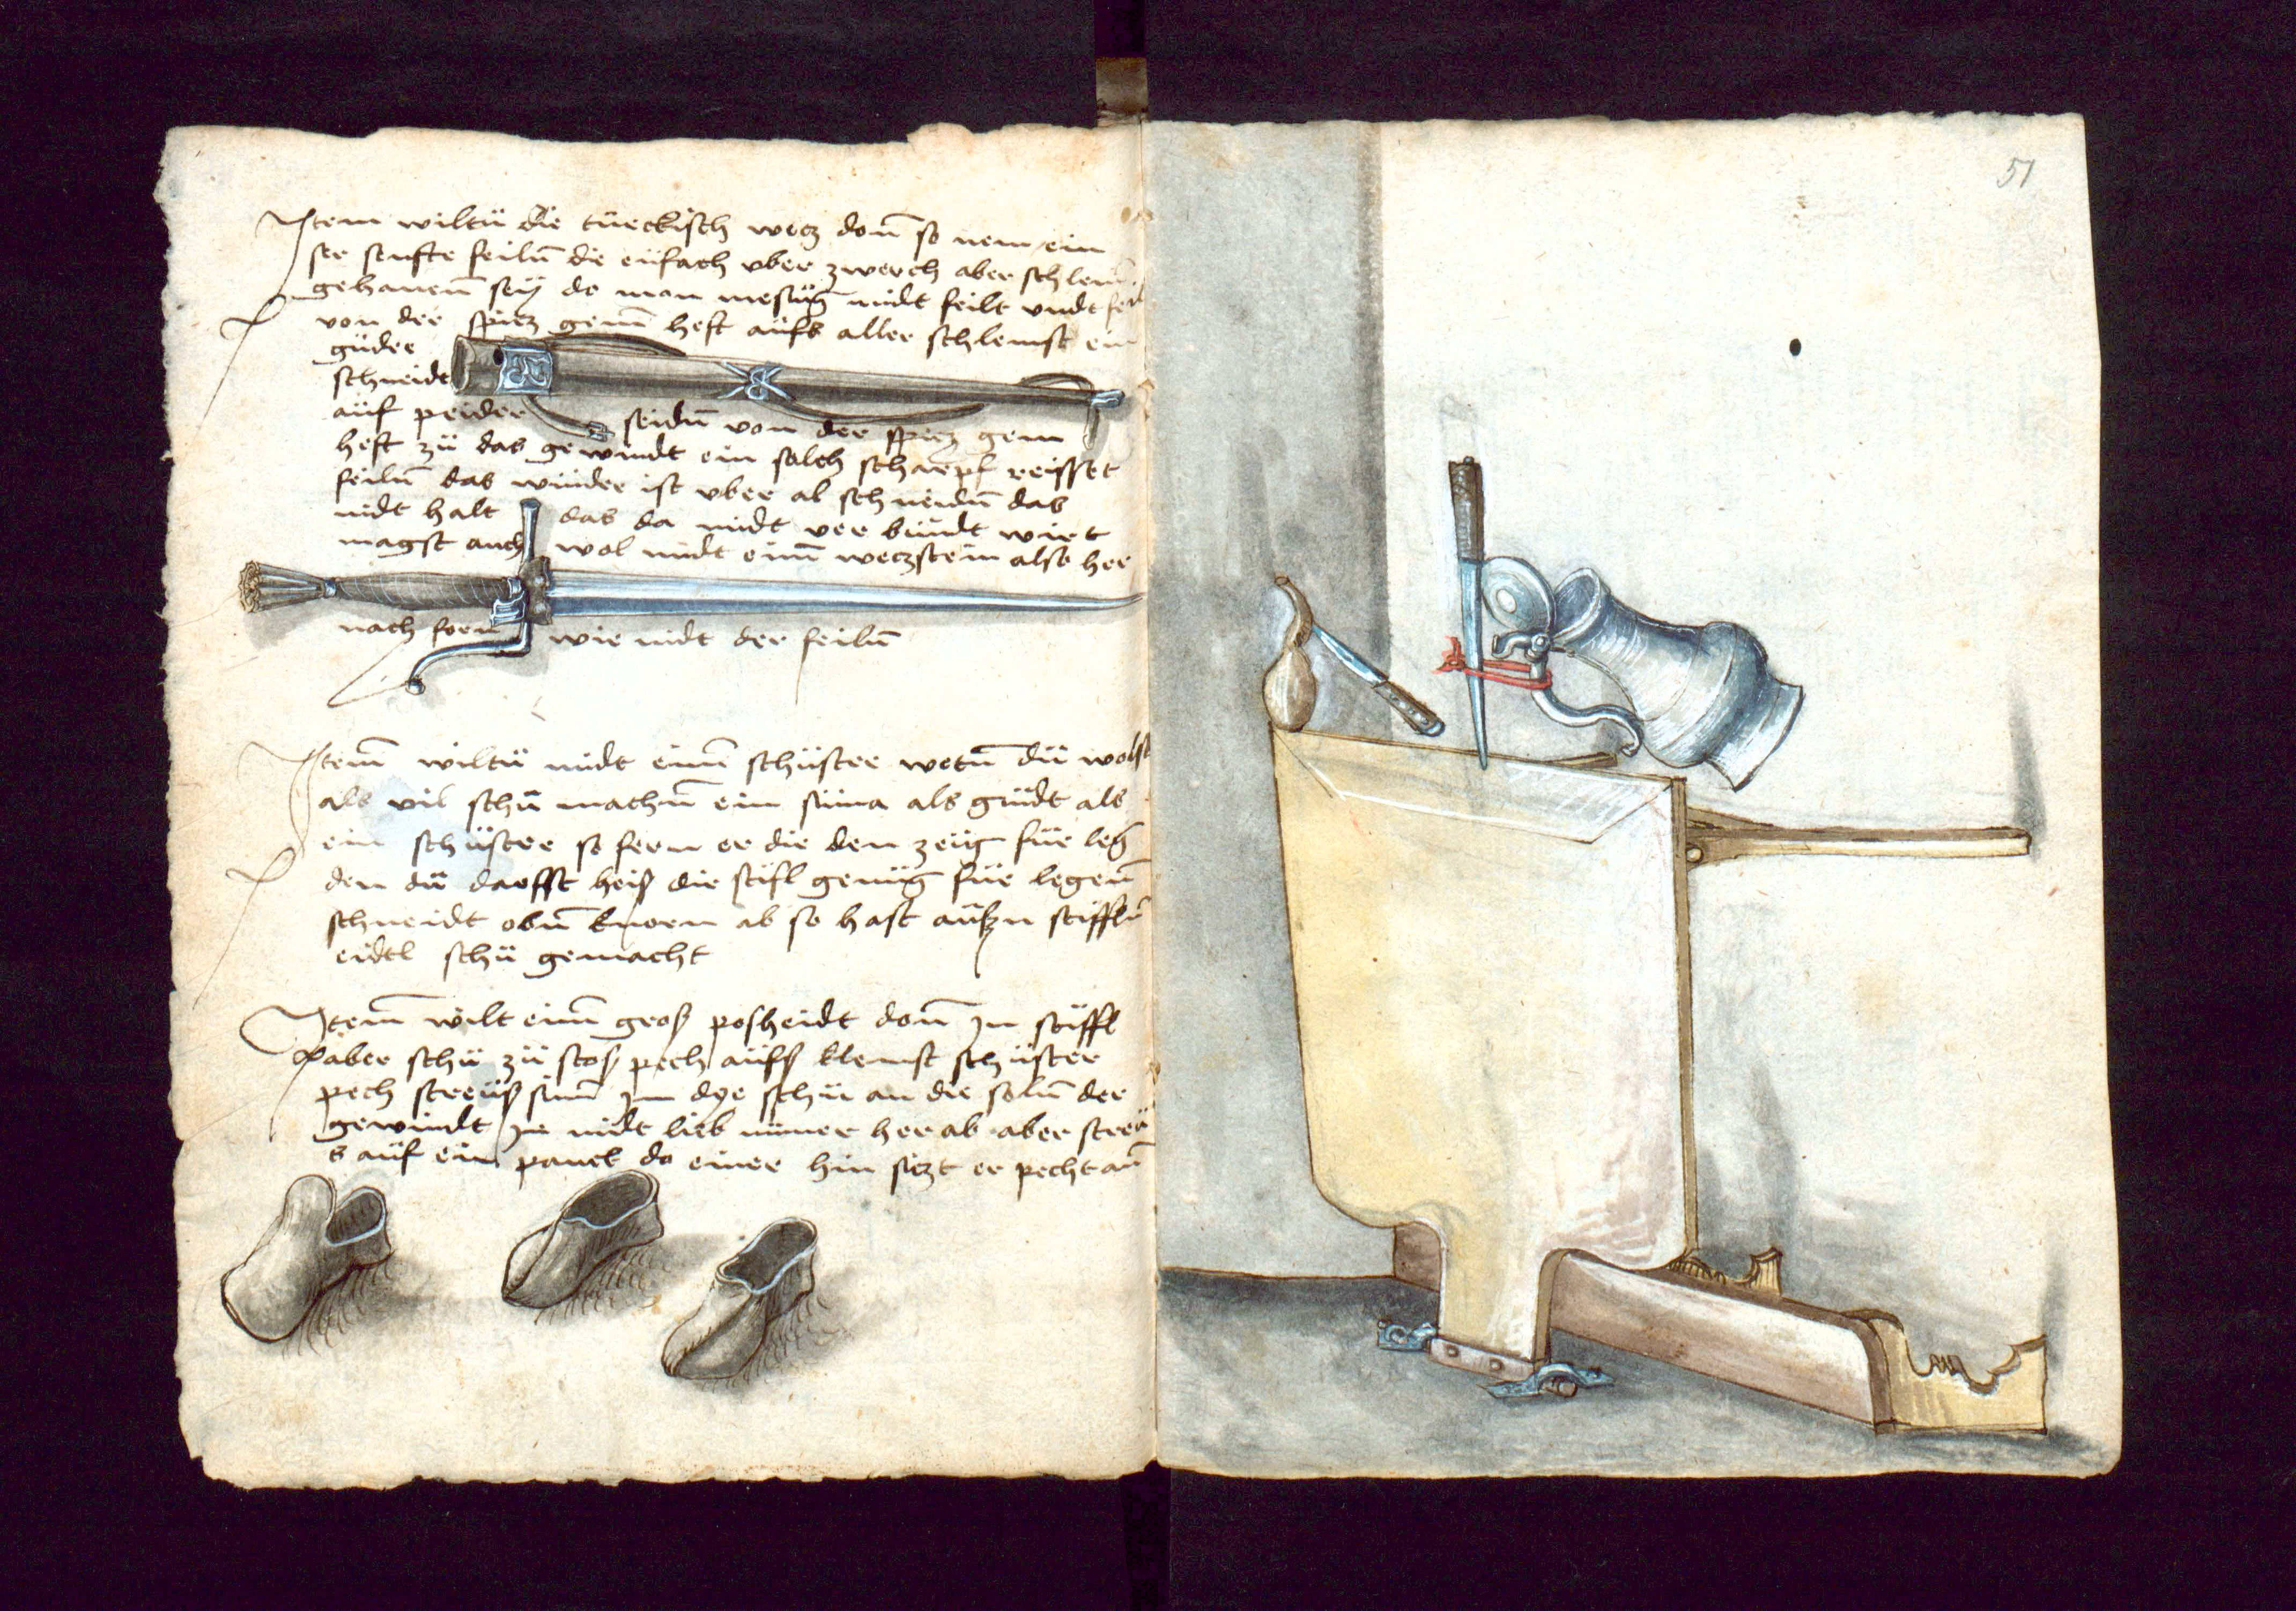 Item wiltü die türckisch wecz don̄ so nem ein
ser senfte feiln̄ die eüfach vber zwerch aber schlem̄
gehauen̄ sey do man mesüng midt feilt vndt feil
von der spicz gem̄ heft aüfs aller schlemst ein
güder
schneidt
aüf peider seidn̄ von der spicz gem
heft zü das gewindt ein solch scharpf reisset
feiln̄ das wünder ist vber al schneidn̄ das
nidt halt das da midt ver bündt wirt
magst auch wol midt einn̄ weczstein also her
nach forn wie midt der feiln̄
Item̄ wiltü midt einē schüster wetn̄ dü wolst
als vil schü machn̄ ein süma als güdt als
ein schüster so fern er die den zeüg für leg
den dü darffst heiß die stifl genüg für legen̄
schneidt obn̄ knorn ab so hast aüßn stiffln̄
eidtl schü gemacht
Item̄ wilt einn̄ groß posheidt don̄ Jn stiffl
aber schü zü stos pech aüfß klemst schüster
pech streüß jm̄ Jn dye schü an die soln̄ der
gewindt Jn midt lieb nimer her ab aber streü
s auf ein panck do einer hin siczt er pecht an̄
51